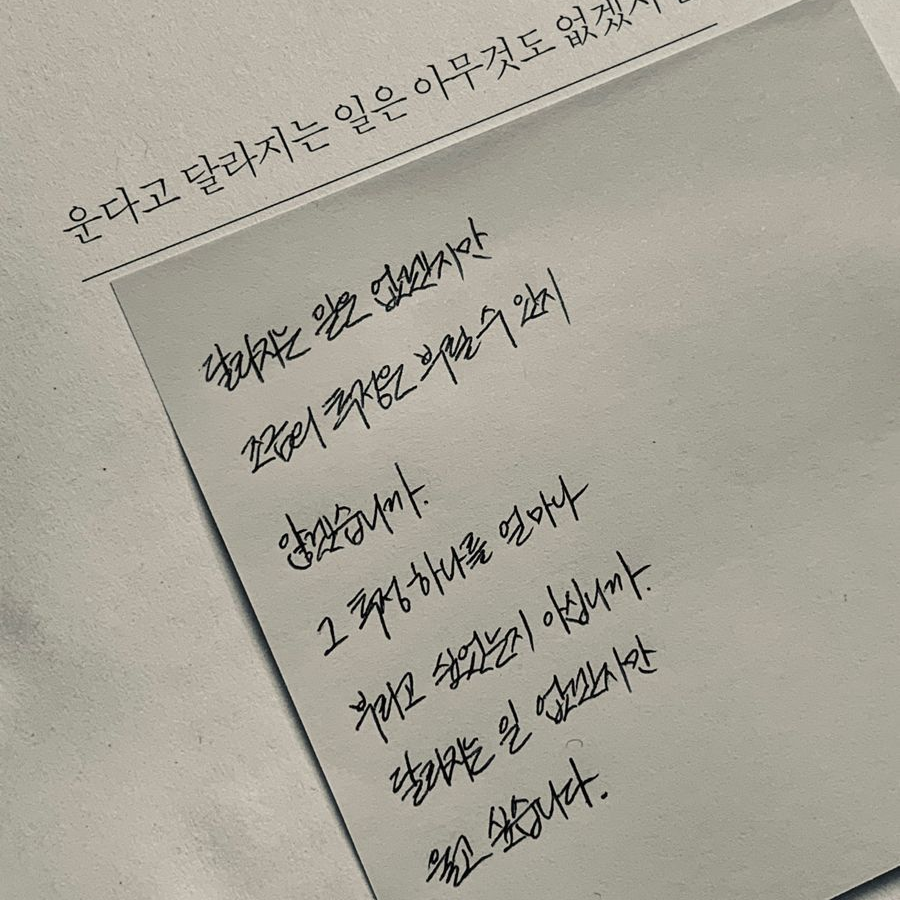 운다고 달라지는 일은 아무것도 없겠지
달라지는 일은 없겠지만
조금의 투정은 부릴 수 있지
않겠습니까.
그 투정 하나를 얼마나
부리고 싶었는지 아십니까.
달라지는 일 없겠지만
울고 싶습니다.